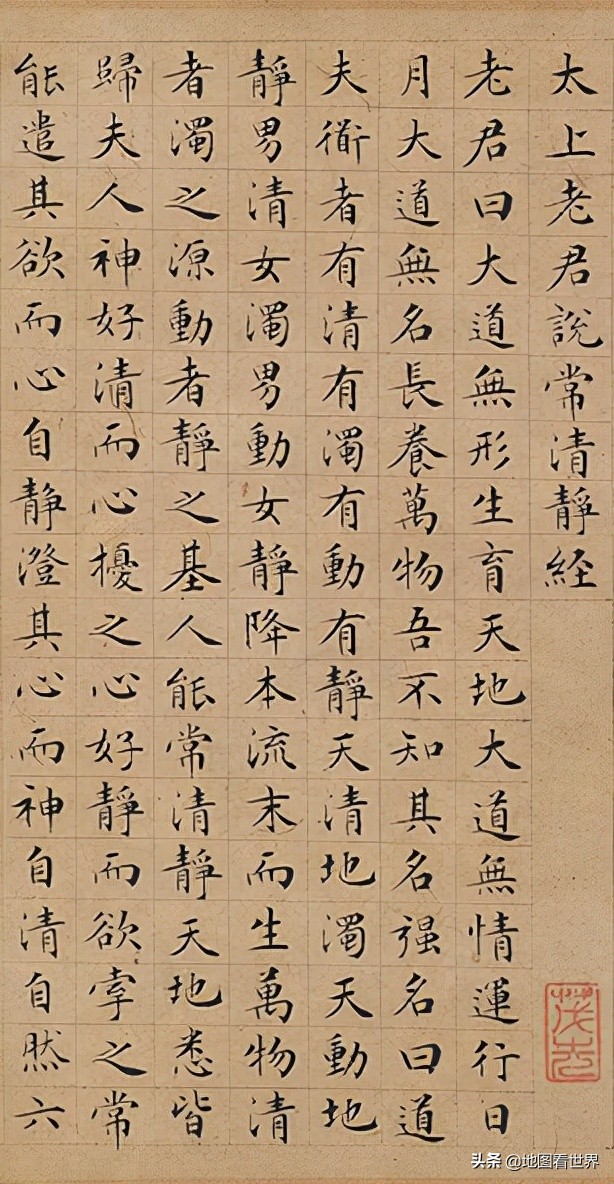 太上老君說常清靜経
老君曰大道無形生育天地大道無情運行日
月大道無名長養萬物吾不知其名强名曰道
夫衜者有清有濁有動有靜天清地濁天動地
靜男清女濁男動女靜降本流末而生萬物清
者濁之源動者靜之基人能常清靜天地悉皆
歸夫人神好清而心擾之心好靜而欲牽之常
能遣其欲而心自静澄其心而神自清自然六
头条 @地图看世界